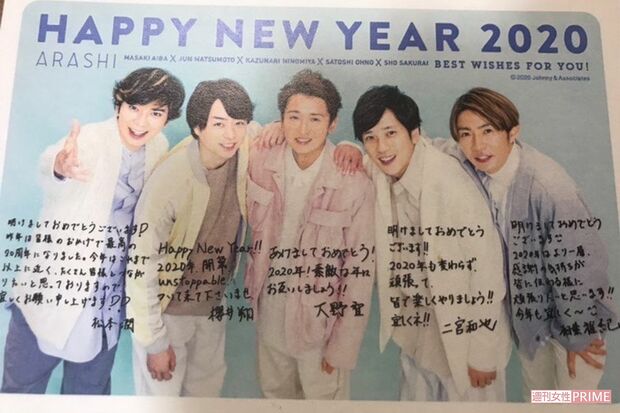 HAPPY NEW YEAR 2020
ARASHI
MASAKI AIBA X JUN MATSUMOTO X KAZUNARI NINOMIYA X SATOSHI OHNO X SHO SAKURAI
BEST WISHES FOR YOU!
©2020 Johnny & Associates
明けましておめでとうございます
昨年は皆様のおかげで最高の
20周年になりました。今年はこれまで
以上に近く、たくさん皆様とつなが
りたいと思っております。
宜しくお願い申し上げます
松本潤
Happy New Year!!
2020年、開幕。
unstoppable.
ついて来て下さいませ
櫻井翔
あけましておめでとう!
2020年!素敵な年に
お互いしましょう!!
大野智
明けましておめでとう
ございます!!
2020年も変わらず、
頑張って、
皆で楽しくやりましょう!!
宜しくネ!!
二宮和也
明けましておめでとう
ございます!!
2020年はより一層、
感謝の気持ちが
皆に伝わる様に
頑張りたいと思います!!
今年も宜しく〜
相葉雅紀
週刊女性PRIME